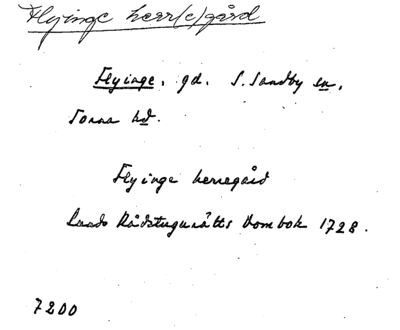 Flyinge herr(e)gård
Flyinge, gd. S. Sandby sn,
Torna hd.
Flyinge herregård
Lunds Rådstugurätts Dombok 1728.
7200